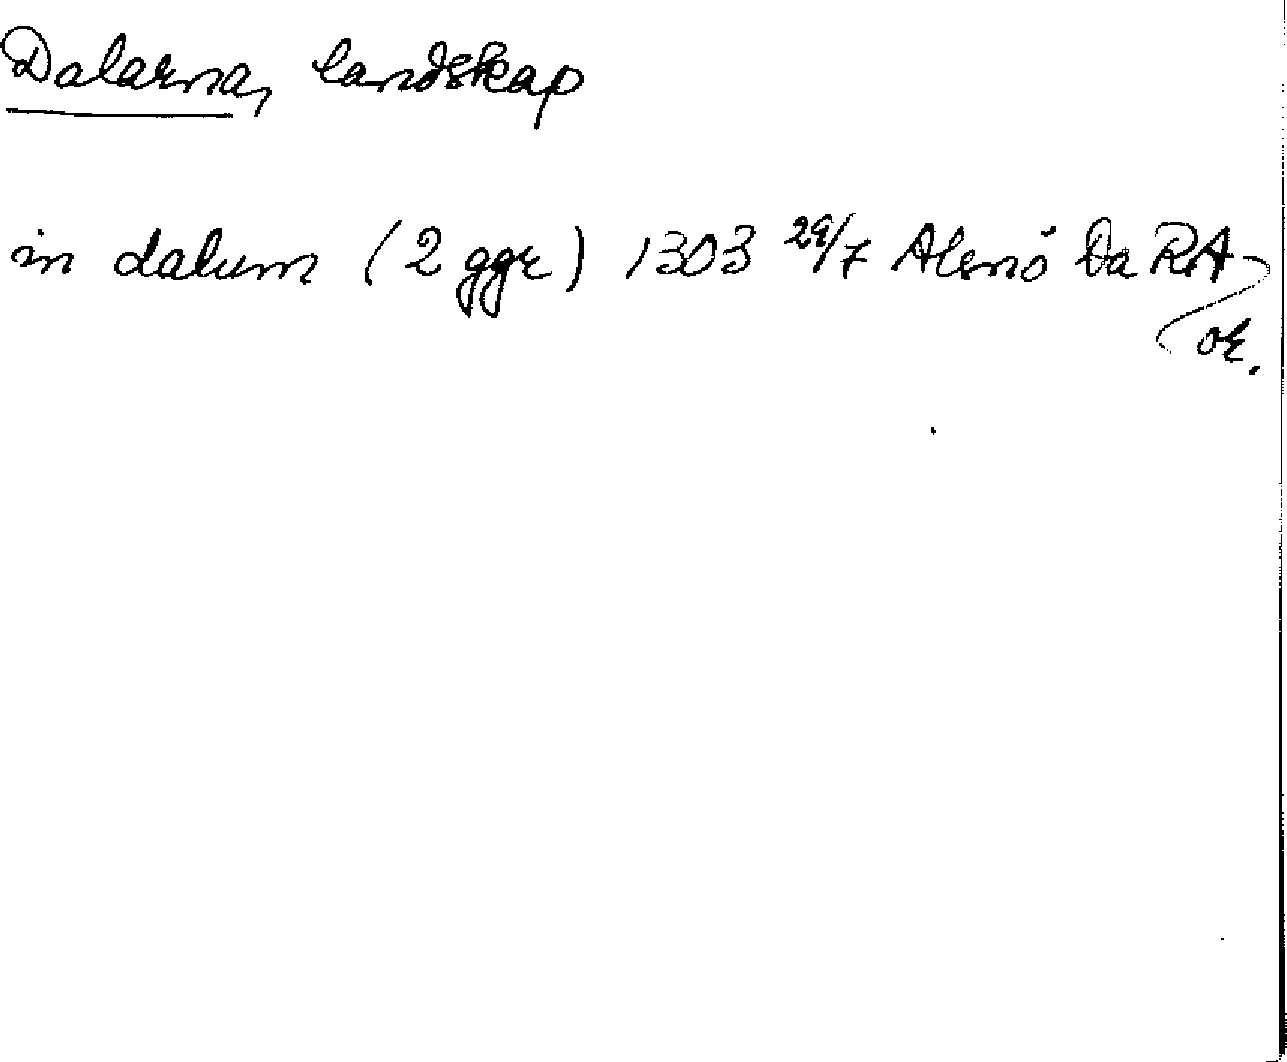 Dalarna, landskap
in dalum (2 ggr) 1303 29/7 Alsnö Da RA
or.